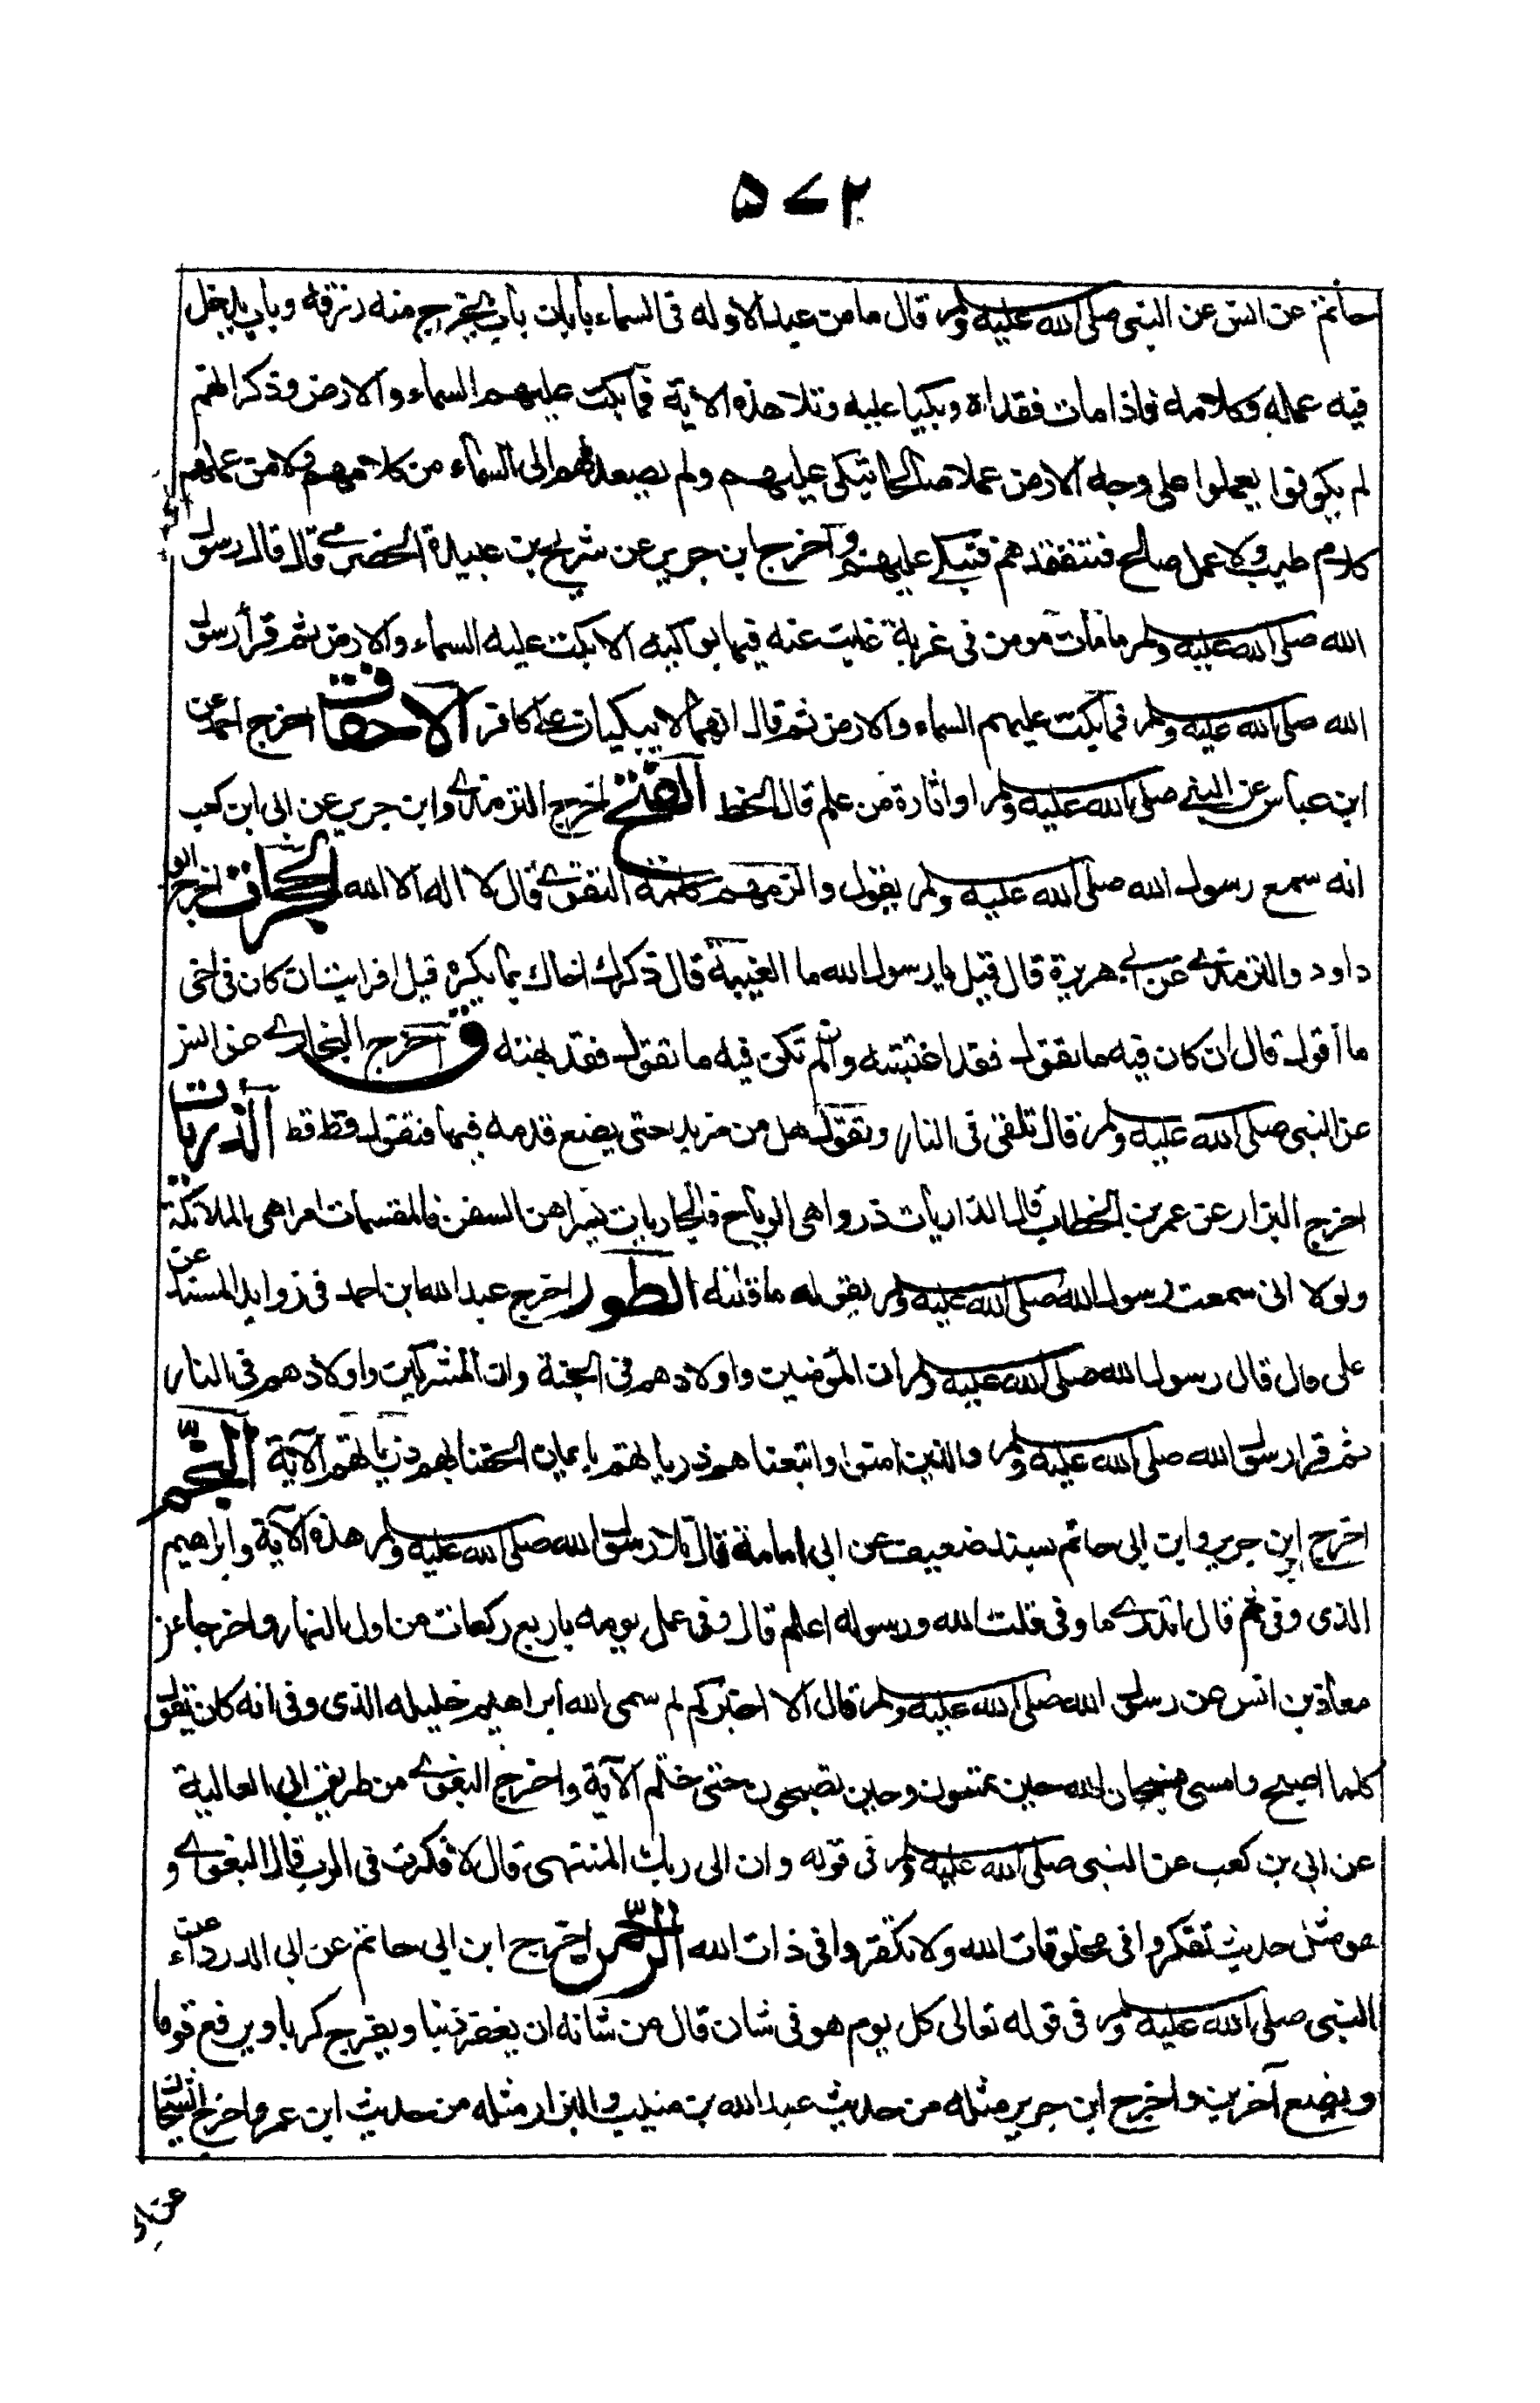 ۵۷۲
حاتم عن انس عن النبي صلى الله عليه وسلم قال ما من عبد الا وله في السماء بابان باب يخرج منه رزقه وباب يدخل
فيه عمله وكلامه فاذا مات فقداه وبكيا عليه وتلا هذه الآية فما بكت عليهم السماء والارض وذكر انهم
لم يكونوا يعملوا على وجه الارض عملا صالحا تبكي عليهم ولم يصعد لهم الى السماء من كلامهم ولا من عملهم
كلام طيب ولا عمل صالح فتفقدهم فتبكي عليهم واخرج ابن جرير عن شريح بن عبيدة الحضرمي قال قال رسول
الله صلى الله عليه وسلم ما مات مومن في غربة غابت عنه فيها بواكيه الا بكت عليه السماء والارض ثم قرأ رسول
الله صلى الله عليه وسلم فما بكت عليهم السماء والارض ثم قال انهما لا يبكيان على كافر الاحقاف اخرج احمد عن
ابن عباس عن النبي صلى الله عليه وسلم او اثارة من علم قال الخط الفتح اخرج الترمذي وابن جرير عن ابي ابن كعب
انه سمع رسول الله صلى الله عليه وسلم يقول والزمهم كلمة التقوى قال لا اله الا الله الحجرات اخرج ابو
داود والترمذي عن ابي هريرة قال قيل يا رسول الله ما الغيبة قال ذكرك اخاك بما يكره قيل افرايت ان كان في اخي
ما اقول قال ان كان فيه ما تقول فقد اغتبته وان لم تكن فيه ما تقول فقد بهته ق اخرج البخاري عن انس
عن النبي صلى الله عليه وسلم قال تلقى في النار وتقول هل من مزيد حتى يضع قدمه فيها فتقول قط قط الذريات
اخرج البزار عن عمر بن الخطاب قال الذاريات ذروا هي الرياح فالجاريات يسرا هن السفن فالمقسمات امرا هي الملائكة
ولولا اني سمعت رسول الله صلى الله عليه وسلم يقوله ما قلته الطور اخرج عبد الله ابن احمد في زوايد المسند عن
علي قال قال رسول الله صلى الله عليه وسلم ان المؤمنين واولادهم في الجنة وان المشركين واولادهم في النار
ثم قرا رسول الله صلى الله عليه وسلم والذين امنوا واتبعناهم ذرياتهم بايمان الحقنا بهم ذرياتهم الآية النجم
اخرج ابن جرير وابن ابي حاتم بسند ضعيف عن ابي امامة قال تلا رسول الله صلى الله عليه وسلم هذه الآية وابراهيم
الذي وفى ثم قال اتدري ما وفى قلت الله ورسوله اعلم قال وفى عمل يومه باربع ركعات من اول النهار واخرجا عن
معاذ بن انس عن رسول الله صلى الله عليه وسلم قال الا اخبركم لم سمى الله ابراهيم خليله الذي وفى انه كان يقول
كلما اصبح وامسى فسبحان الله حين تمسون وحين تصبحون حتى ختم الآية واخرج البغوي من طريق ابي العالية
عن ابي بن كعب عن النبي صلى الله عليه وسلم في قوله وان الى ربك المنتهى قال لا فكرة في الرب قال البغوي و
هو مثل حديث تفكروا في مخلوقات الله ولا تفكروا في ذات الله الرحمن اخرج ابن ابي حاتم عن ابي الدرداء عن
النبي صلى الله عليه وسلم في قوله تعالى كل يوم هو في شان قال من شانه ان يغفر ذنبا ويفرج كربا ويرفع قوما
ويضع آخرين واخرج ابن جرير مثله من حديث عبد الله بن منيب والبزار مثله من حديث ابن عمر واخرج الشيخان